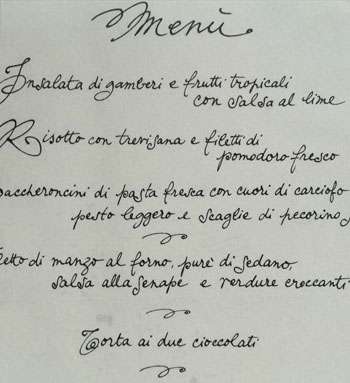 Menù
Insalata di gamberi e frutti tropicali
con salsa al lime
Risotto con trevisana e filetti di
pomodoro fresco
paccheroncini di pasta fresca con cuori di carciofo
pesto leggero e scaglie di pecorino
letto di manzo al forno, purè di sedano,
salsa alla senape e verdure croccanti
Torta ai due cioccolati